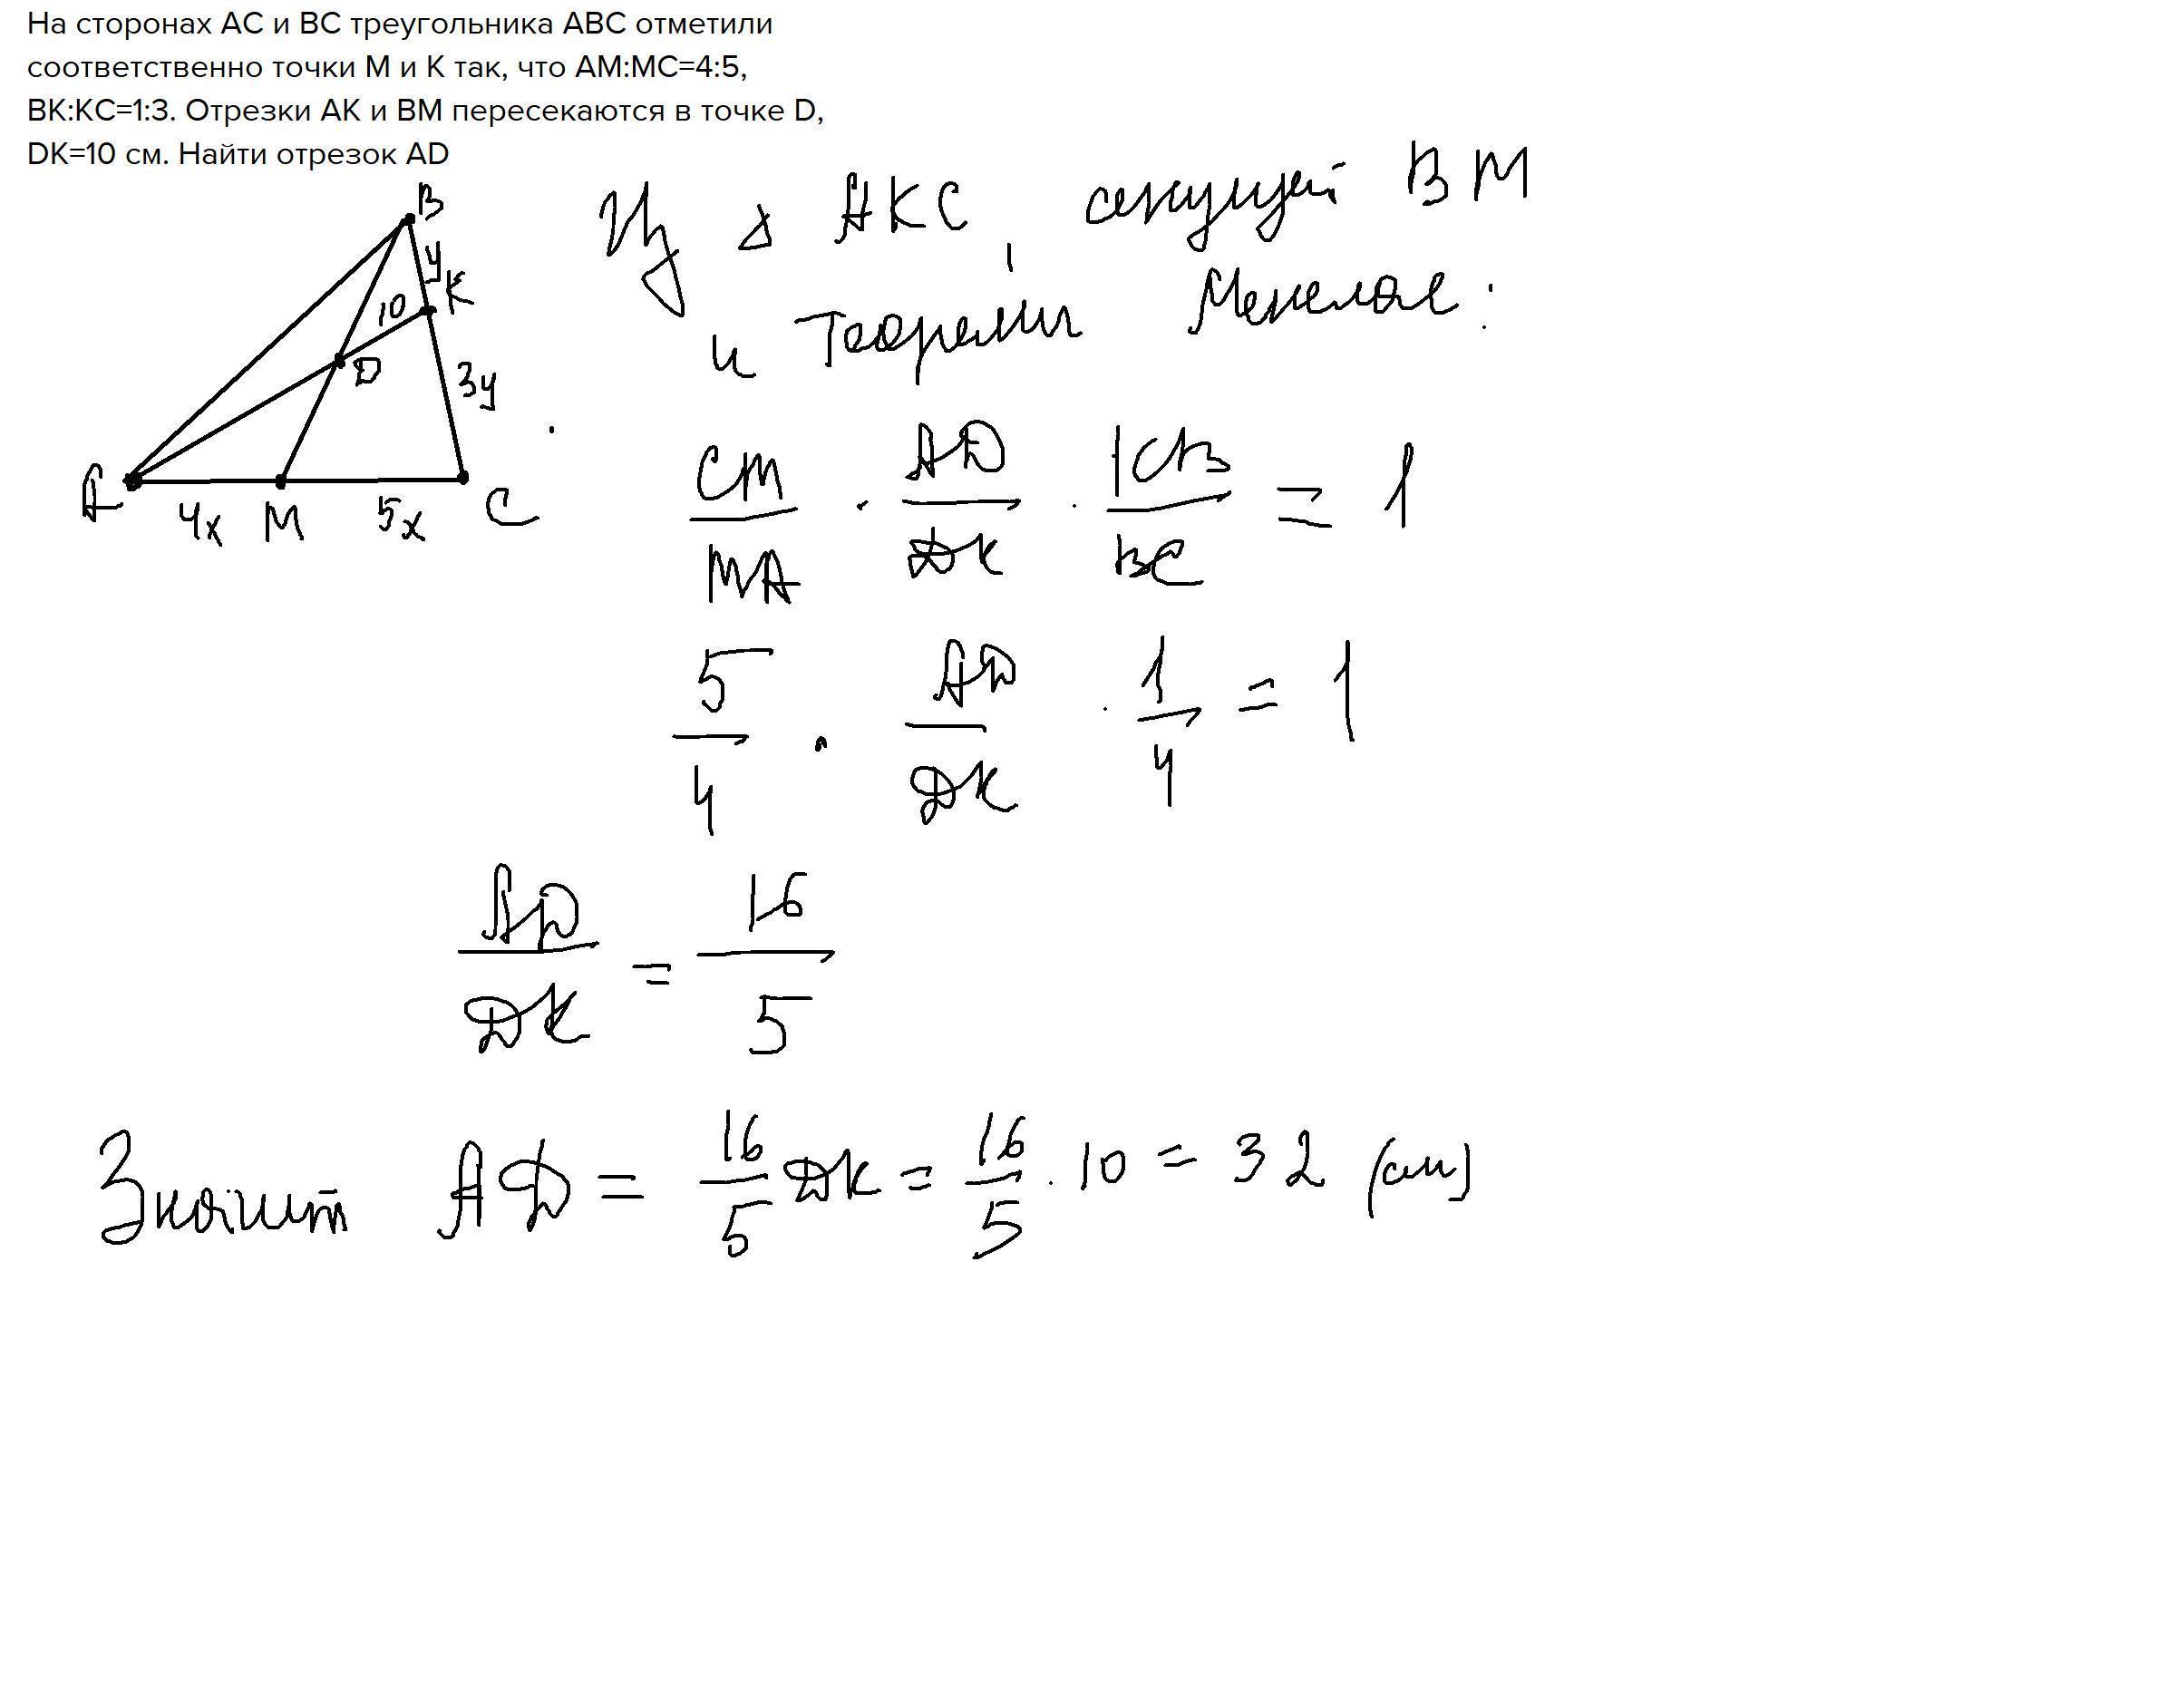 На сторонах AC и BC треугольника ABC отметили
соответственно точки M и K так, что AM:MC=4:5,
BK:KC=1:3. Отрезки AK и BM пересекаются в точке D,
DK=10 см. Найти отрезок AD
B
y
K
10
D
3y
A
4x
M
5x
C
Из Δ AKC, секущей BM
и Теоремы Менелая:
CM/MA · AD/DK · KB/BC = 1
5/4 · AD/DK · 1/4 = 1
AD/DK = 16/5
Значит AD = 16/5 DK = 16/5 · 10 = 32 (см)